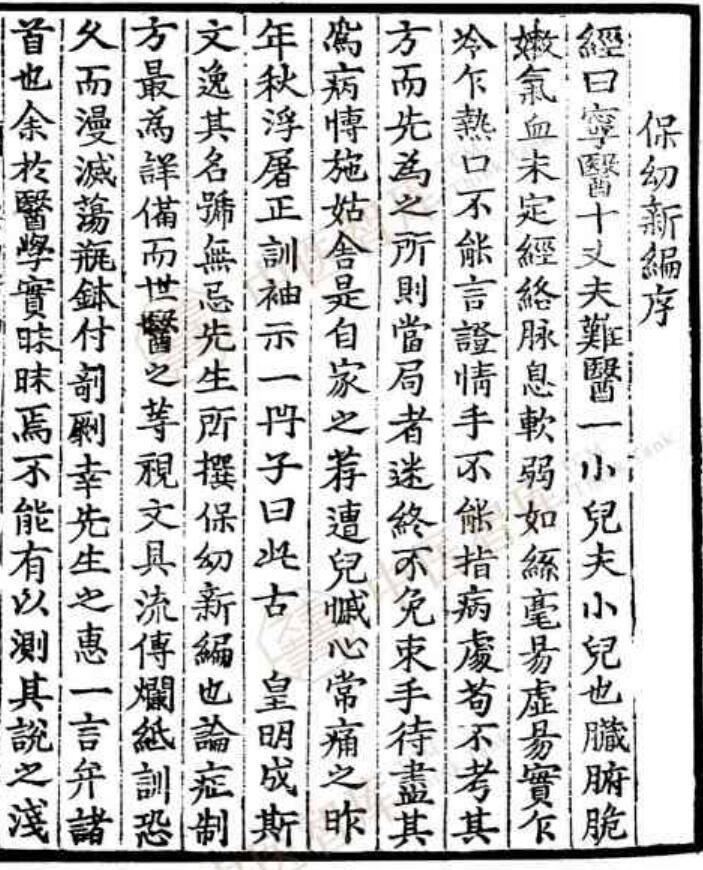 保幼新編序
經曰寧醫十丈夫難醫一小兒夫小兒也臟腑脆
嫩氣血未定經絡脉息軟弱如絲毫易虛易實乍
冷乍熱口不能言證情手不能指病處苟不考其
方而先為之所則當局者迷終不免束手待盡其
為病慱施姑舍是自家之荐遭兒慽心常痛之昨
年秋浮屠正訓袖示一冊子曰此古　皇明成斯
文逸其名號無忌先生所撰保幼新編也論症制
方最為詳備而世醫之等視文具流傳爛紙訓恐
久而漫滅蕩瓶鉢付剞劂幸先生之惠一言弁諸
首也余於醫學實昧昧焉不能有以測其說之淺